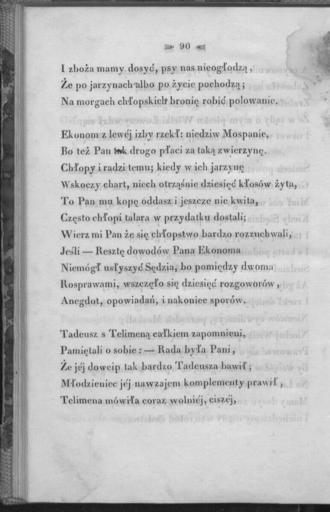 90
I zboża mamy dosyć, psy nas nieogłodzą,
Że po jarzynach albo po życie pochodzą;
Na morgach chłopskich bronię robić polowanie.
Ekonom z lewéj izby rzekł: niedziw Mospanie,
Bo też Pan tak drogo płaci za taką zwierzynę.
Chłopy i radzi temu; kiedy w ich jarzynę
Wskoczy chart, niech otrząśnie dziesięć kłosów żyta,
To Pan mu kopę oddasz i jeszcze nie kwita,
Często chłopi talara w przydatku dostali;
Wierz mi Pan że się chłopstwo bardzo rozzuchwali,
Jeśli — Resztę dowodów Pana Ekonoma
Niemógł usłyszyć Sędzia, bo pomiędzy dwoma
Rosprawami, wszczęło się dziesięć rozgoworów,
Anegdot, opowiadań, i nakoniec sporów.
Tadeusz z Telimeną całkiem zapomnieni,
Pamiętali o sobie: — Rada była Pani,
Że jéj dowcip tak bardzo Tadeusza bawił;
Młodzieniec jéj nawzajem komplementy prawił,
Telimena mówiła coraz wolniéj, ciszéj,